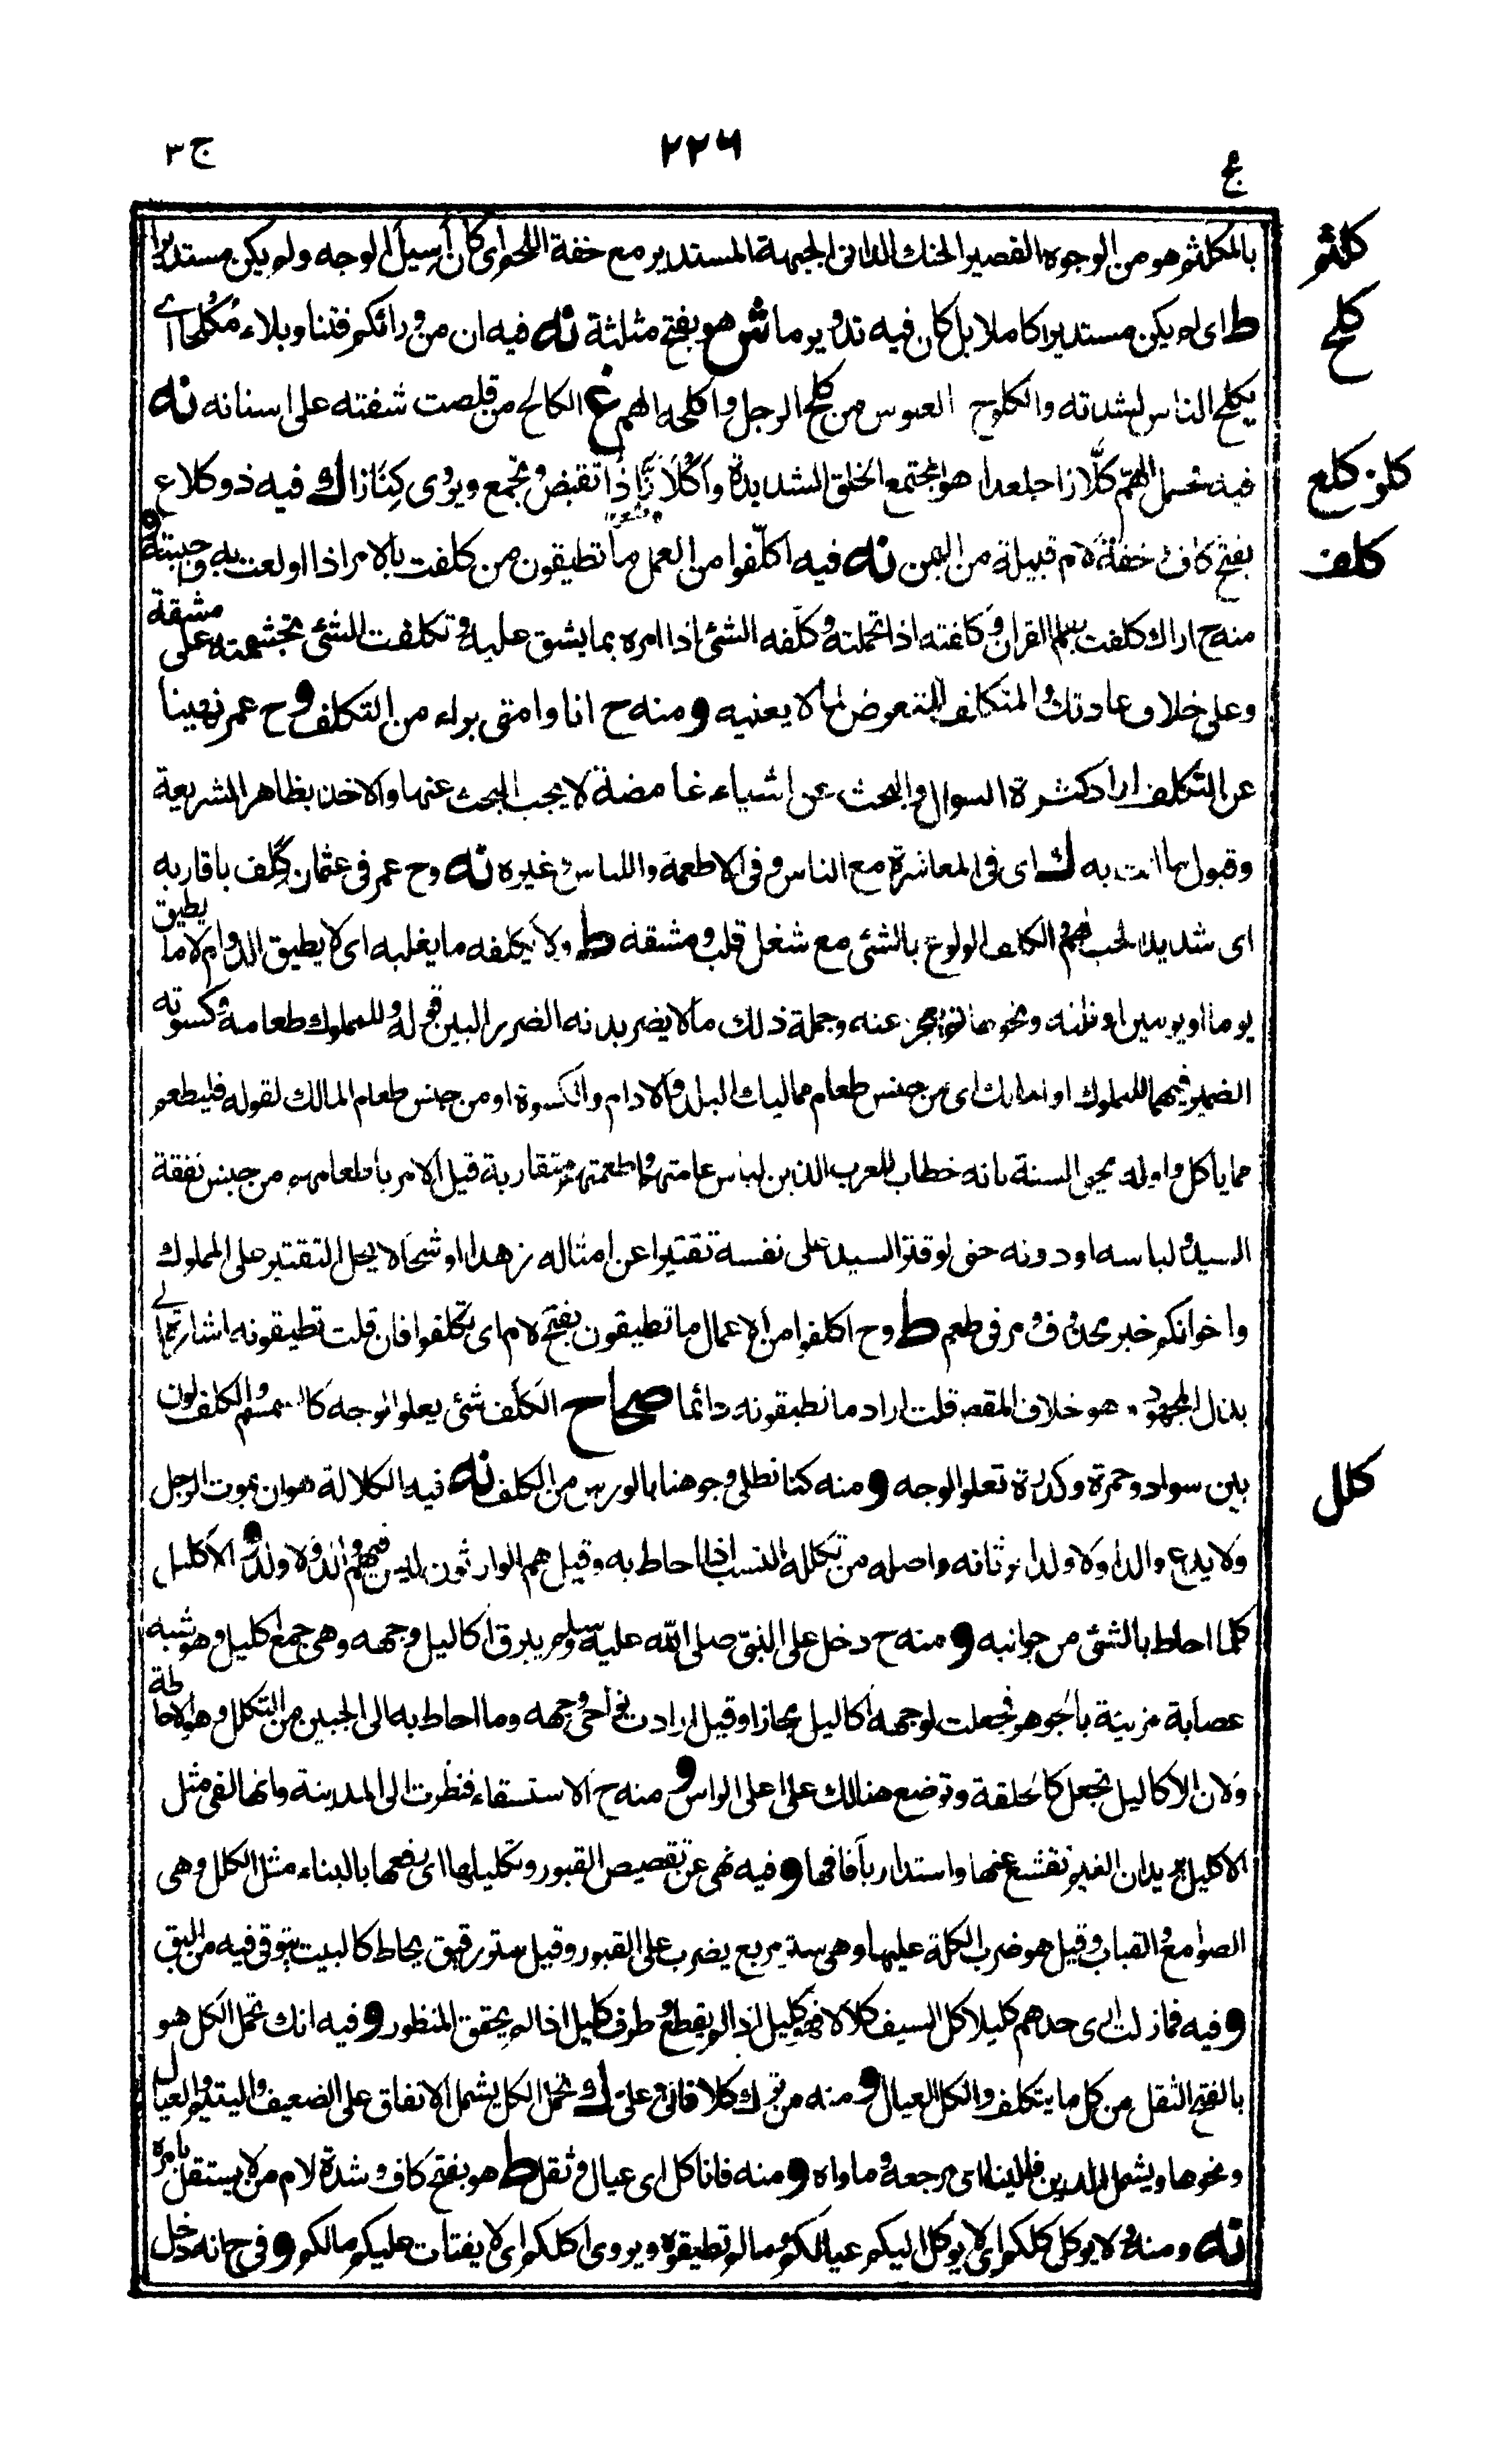 ج ٣
٢٢٦
مج
كلثم
بالمكلثم هو من الوجوه القصير الحنك الدانى الجبهة المستدير مع خفة اللحم اى كان اسيل الوجه ولم يكن مستديرا
كلح
ط اى لم يكن مستديرا كاملا بل كان فيه تدوير ما ش هو بفتح مثلثة نه فيه ان من ورائكم فتنا وبلاء مُكْلِحا اى
يكلح الناس لشدته والكلوح العبوس من كلح الرجل واكلحه الهم غ الكالح من قلصت شفته على اسنانه نه
كلز كلع
فيه فحمل الهمّ كلّازا جلعدا هو المجتمع الخلق الشديدة واكْلَازَّ اذا تقبض وتجمع ويروى كِنَازا ك فيه ذو كلاع
كلف
بفتح كاف وخفة لام قبيلة من اليمن نه فيه اكلّفوا من العمل ما تطيقون من كلفت بالامر اذا اولعت به واحببته و
منه ح اراك كلفت بعلم القران وكلفته اذا تحملته وكلّفه الشئ اذا امره بما يشق عليه وتكلفت الشئ تجشمته على مشقة
وعلى خلاف عادتك والمتكلف المتعرض لما لا يعنيه ومنه ح انا وامتى براء من التكلف وح عمر نهينا
عن التكلف اراد كثرة السوال والبحث عن اشياء غامضة لا يجب البحث عنها والاخذ بظاهر الشريعة
وقبول ما اتت به ك اى فى المعاشرة مع الناس وفى الاطعمة واللباس وغيره نه وح عمر فى عثمان كَلِف باقاربه
اى شديد الحب لهم والكلف الولوع بالشئ مع شغل قلب ومشقة ط ولا يكلفه ما يغلبه اى لا يطيق الدوام لا ما يطيق
يوما او يومين او ثلثه ونحوها ثم يعجز عنه وجملة ذلك ما لا يضر بدنه الضرر البين قوله وللمملوك طعامه وكسوته
الضمير فيهما للمملوك او للمالك اى من جنس طعام مماليك البلد والادام والكسوة او من جنس طعام المالك لقوله فليطعم
مما ياكل واوله يحيى السنة بانه خطاب للعرب الذين لباس عامتهم واطعمتهم متقاربة قيل الامر باطعامهم من جنس نفقة
السيد ولباسه او دونه حتى لو قتر السيد على نفسه تقتيرا عن امثاله زهدا او شحا لا يحل التقتير على المملوك
واخوانكم خبر محذوف مر فى طعم ط وح اكلفوا من الاعمال ما تطيقون بفتح لام اى تكلفوا فان قلت تطيقونه اشارة الى
بذل المجهود وهو خلاف المقصد قلت اراد ما تطيقونه دائما صحاح الكَلَف شئ يعلو الوجه كالسمسم والكلف لون
كلل
بين سواد وحمرة وكدرة تعلو الوجه ومنه كنا نطلى وجوهنا بالورس من الكلف نه فيه الكلالة هو ان يموت الرجل
ولا يدع والدا ولا ولدا يرثانه واصله من تكلله النسب اذا احاط به وقيل هم الوارثون ليس فيهم والد ولا ولد والاكليل
كلما احاط بالشئ من جوانبه ومنه ح دخل على النبى صلى الله عليه وسلم يبرق اكاليل وجهه وهى جمع اكليل وهو شبه
عصابة مزينة بالجوهر فجعلت لوجهه اكاليل مجازا وقيل ارادت نواحى وجهه وما احاط به الى الجبين من التكلل وهو الاحاطة
ولان الاكاليل تجعل كالحلقة وتوضع هنالك على اعلى الراس ومنه ح الاستسقاء فنظرت الى المدينة وانها لفى مثل
الاكليل يريد ان الغيم تقشع عنها واستدار بآفاقها وفيه نهى عن تقصيص القبور وتكليلها اى رفعها بالبناء مثل الكلل وهى
الصوامع والقباب وقيل هو ضرب الكلة عليها وهى ستر مربع يضرب على القبور وقيل ستر رقيق يخاط كالبيت يتوقى فيه من البق
وفيه فما زلت ارى حدهم كليلا كل السيف كلالا فهو كليل اذا لم يقطع وطرف كليل اذا لم يحقق المنظور وفيه انك تحمل الكل هو
بالفتح الثقل من كل ما يتكلف والكل العيال ومنه من ترك كلا فالى وعلىّ ك وتحمل الكل يشمل الانفاق على الضعيف واليتيم والعيال
ونحوها ويشمل المدين فالينا اى مرجعه وماواه ومنه فانا كل اى عيال وثقل ط هو بفتح كاف وشدة لام من لا يستقل بامره
نه ومنه ولا يوكل كلكم اى لا يوكل اليكم عيالكم وما لم تطيقوه ويروى اكلكم اى لا يفتات عليكم مالكم وفى ح انه دخل